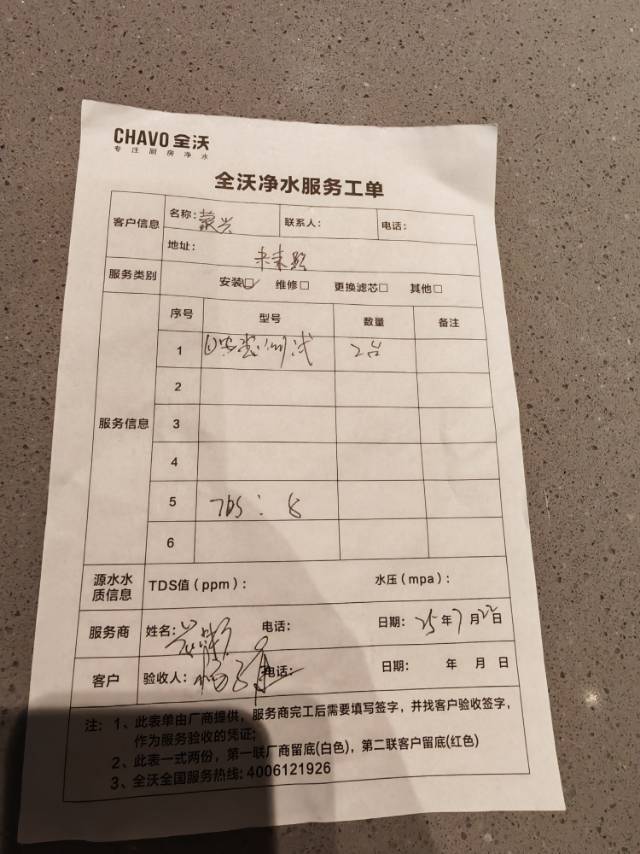 CHAVO 全沃
专注厨房净水
全沃净水服务工单
客户信息 名称: 联系人: 电话:
地址: 未来路
服务类别 安装☑ 维修□ 更换滤芯□ 其他□
服务信息 序号 型号 数量 备注
1 测试 2台
2
3
4
5 TDS: 8
6
源水水质信息 TDS值(ppm): 水压(mpa):
服务商 姓名: 电话: 日期: 25年7月22日
客户 验收人: 电话: 日期: 年 月 日
注: 1、此表单由厂商提供,服务商完工后需要填写签字,并找客户验收签字,
作为服务验收的凭证;
2、此表一式两份,第一联厂商留底(白色),第二联客户留底(红色)
3、全沃全国服务热线: 4006121926